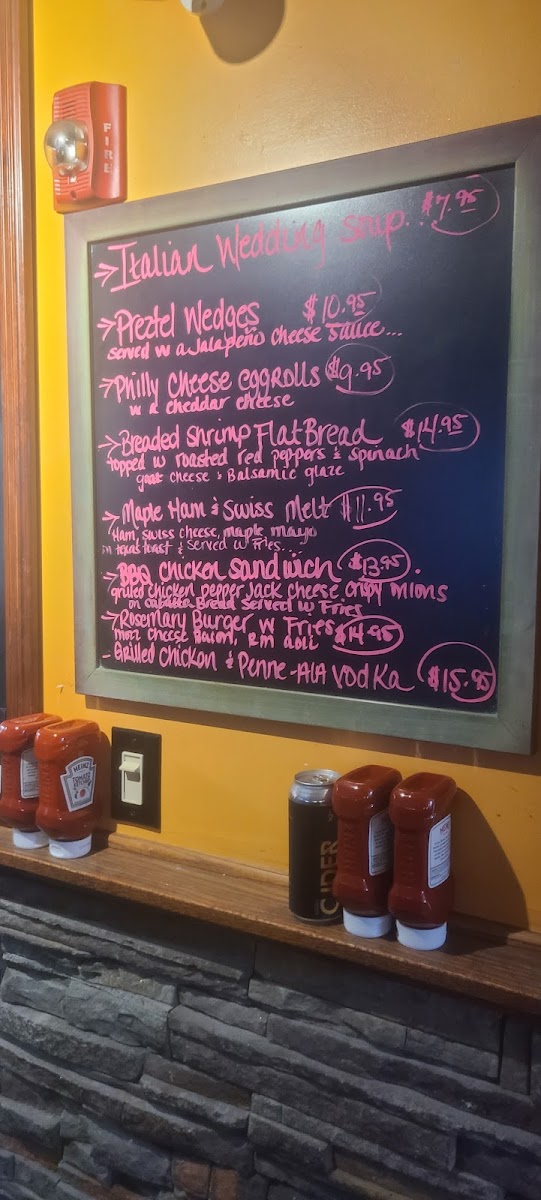 FIRE
→Italian Wedding Soup.. $7.95
→Preztel Wedges $10.95
served w a Jalapeño cheese sauce...
→Philly cheese eggrolls $9.95
w a cheddar cheese
→Breaded Shrimp FlatBread $14.95
topped w roasted red peppers & spinach
goat cheese & Balsamic glaze
→Maple Ham & Swiss Melt $11.95
Ham, swiss cheese, maple mayo
in texas toast & served w Fries...
→BBQ chicken sandwich $13.95.
grilled chicken pepper Jack cheese, crispy onions
on Bread served w Fries
→Rosemary Burger w Fries $14.95
mozz cheese Bacon, RM aoli
- Grilled chicken & Penne -AlA Vodka $15.95
HEINZ
TOMATO
KETCHUP
CIDER